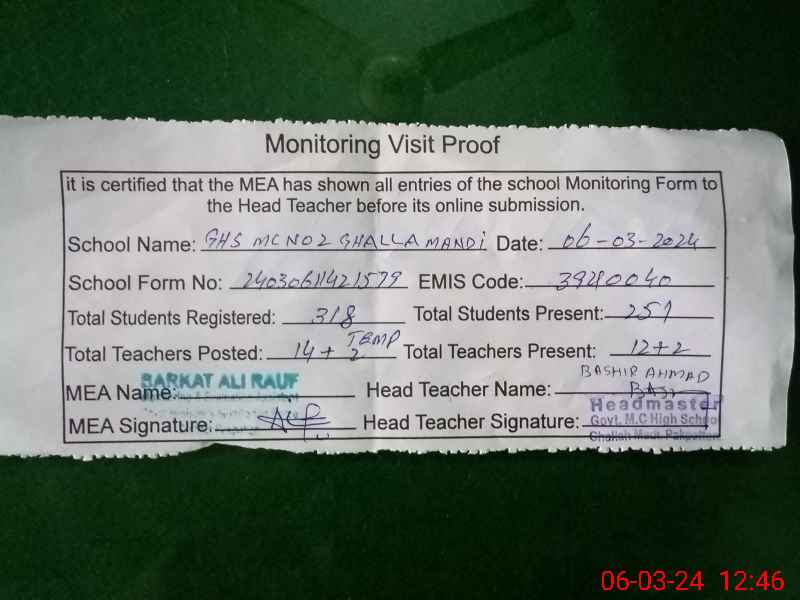 Monitoring Visit Proof
it is certified that the MEA has shown all entries of the school Monitoring Form to
the Head Teacher before its online submission.
School Name: GHS MC NO2 GHALLA MANDi Date: 06-03-2024
School Form No: 24030611421579 EMIS Code: 39210040
Total Students Registered: 318 Total Students Present: 251
Total Teachers Posted: 14 + 2 TEMP Total Teachers Present: 12+2
MEA Name: BARKAT ALI RAUF Head Teacher Name: BASHIR AHMAD
MEA Signature: Head Teacher Signature:
Headmaster
Govt. M.C High School
06-03-24 12:46